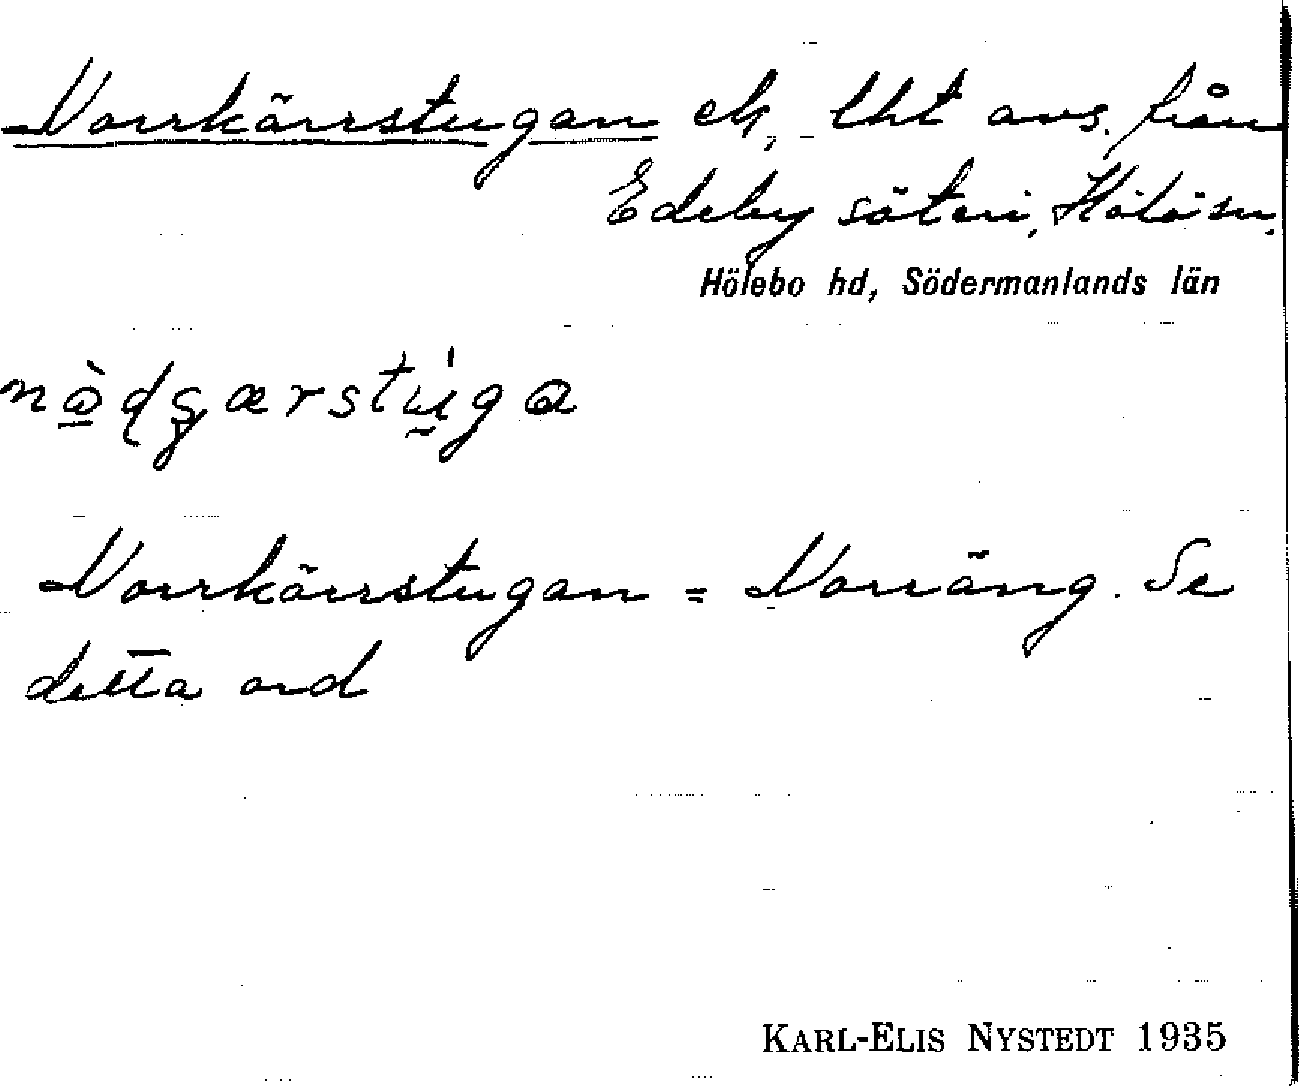 Norrkärrstugan ek, lht avs. från
Edeby säteri, Hölö sn,
Hölebo hd, Södermanlands län
Norrkärrstugan = Norräng. Se
detta ord
KARL-ELIS NYSTEDT 1935